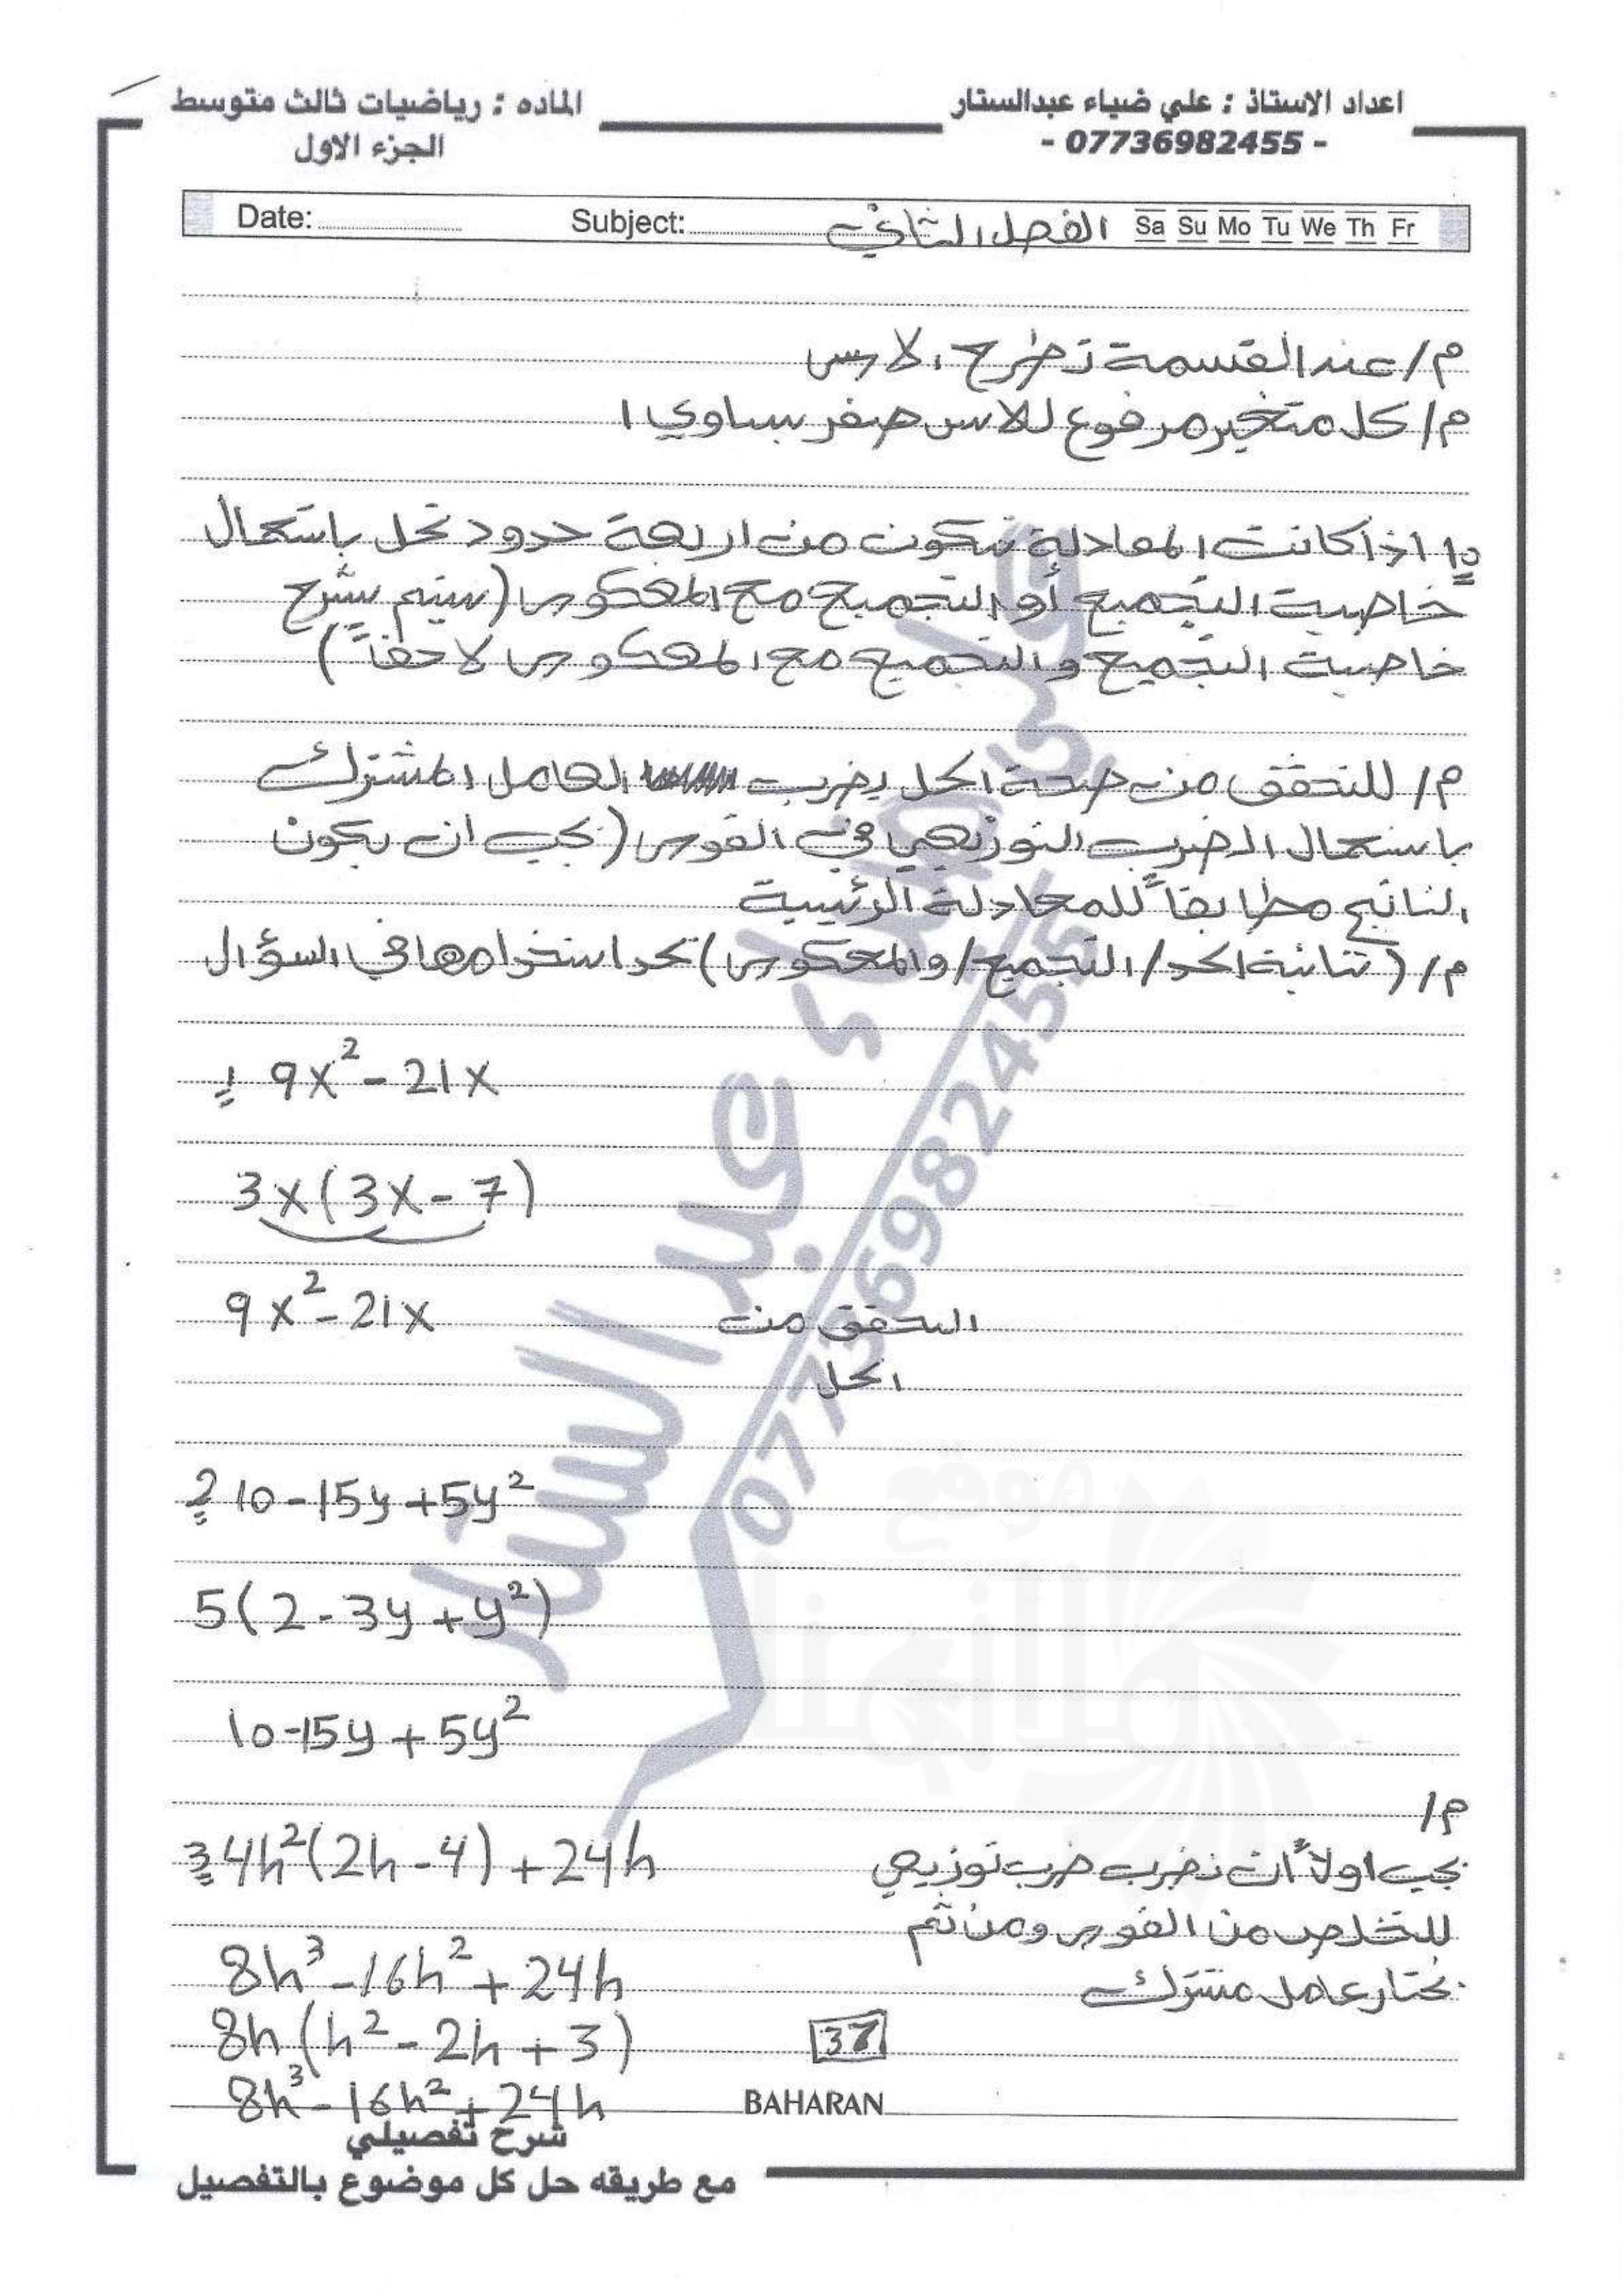 اعداد الاستاذ : علي ضياء عبدالستار
- 07736982455 -
الماده : رياضيات ثالث متوسط
الجزء الاول
Date: Subject: الفصل الثاني Sa Su Mo Tu We Th Fr
م/ عند القسمة تطرح الاسس
م/ كل متغير مرفوع للاس صفر يساوي 1
10 اذا كانت المعادلة تتكون من اربعة حدود تحل باستعمال
خاصية التجميع أو التجميع مع المعكوس (سيتم شرح
خاصية التجميع والتجميع مع المعكوس لاحقاً)
م/ للتحقق من صحة الحل يضرب العامل المشترك
باستعمال الضرب التوزيعي في القوس (يجب ان يكون
الناتج مطابقاً للمعادلة الرئيسية
م/ (ثنائية الحد/ التجميع/ والمعكوس) تحد استخدامها في السؤال
1 9x² - 21x
3x(3x - 7)
9x² - 21x التحقق من
الحل
2 10 - 15y + 5y²
5(2 - 3y + y²)
10 - 15y + 5y²
م/
3 4h²(2h - 4) + 24h يجب اولاً ان نضرب ضرب توزيعي
للتخلص من القوس ومن ثم
8h³ - 16h² + 24h نختار عامل مشترك
8h(h² - 2h + 3) 37
8h³ - 16h² + 24h BAHARAN
شرح تفصيلي
مع طريقه حل كل موضوع بالتفصيل
علي ضياء عبد الستار
07736982455
موقع